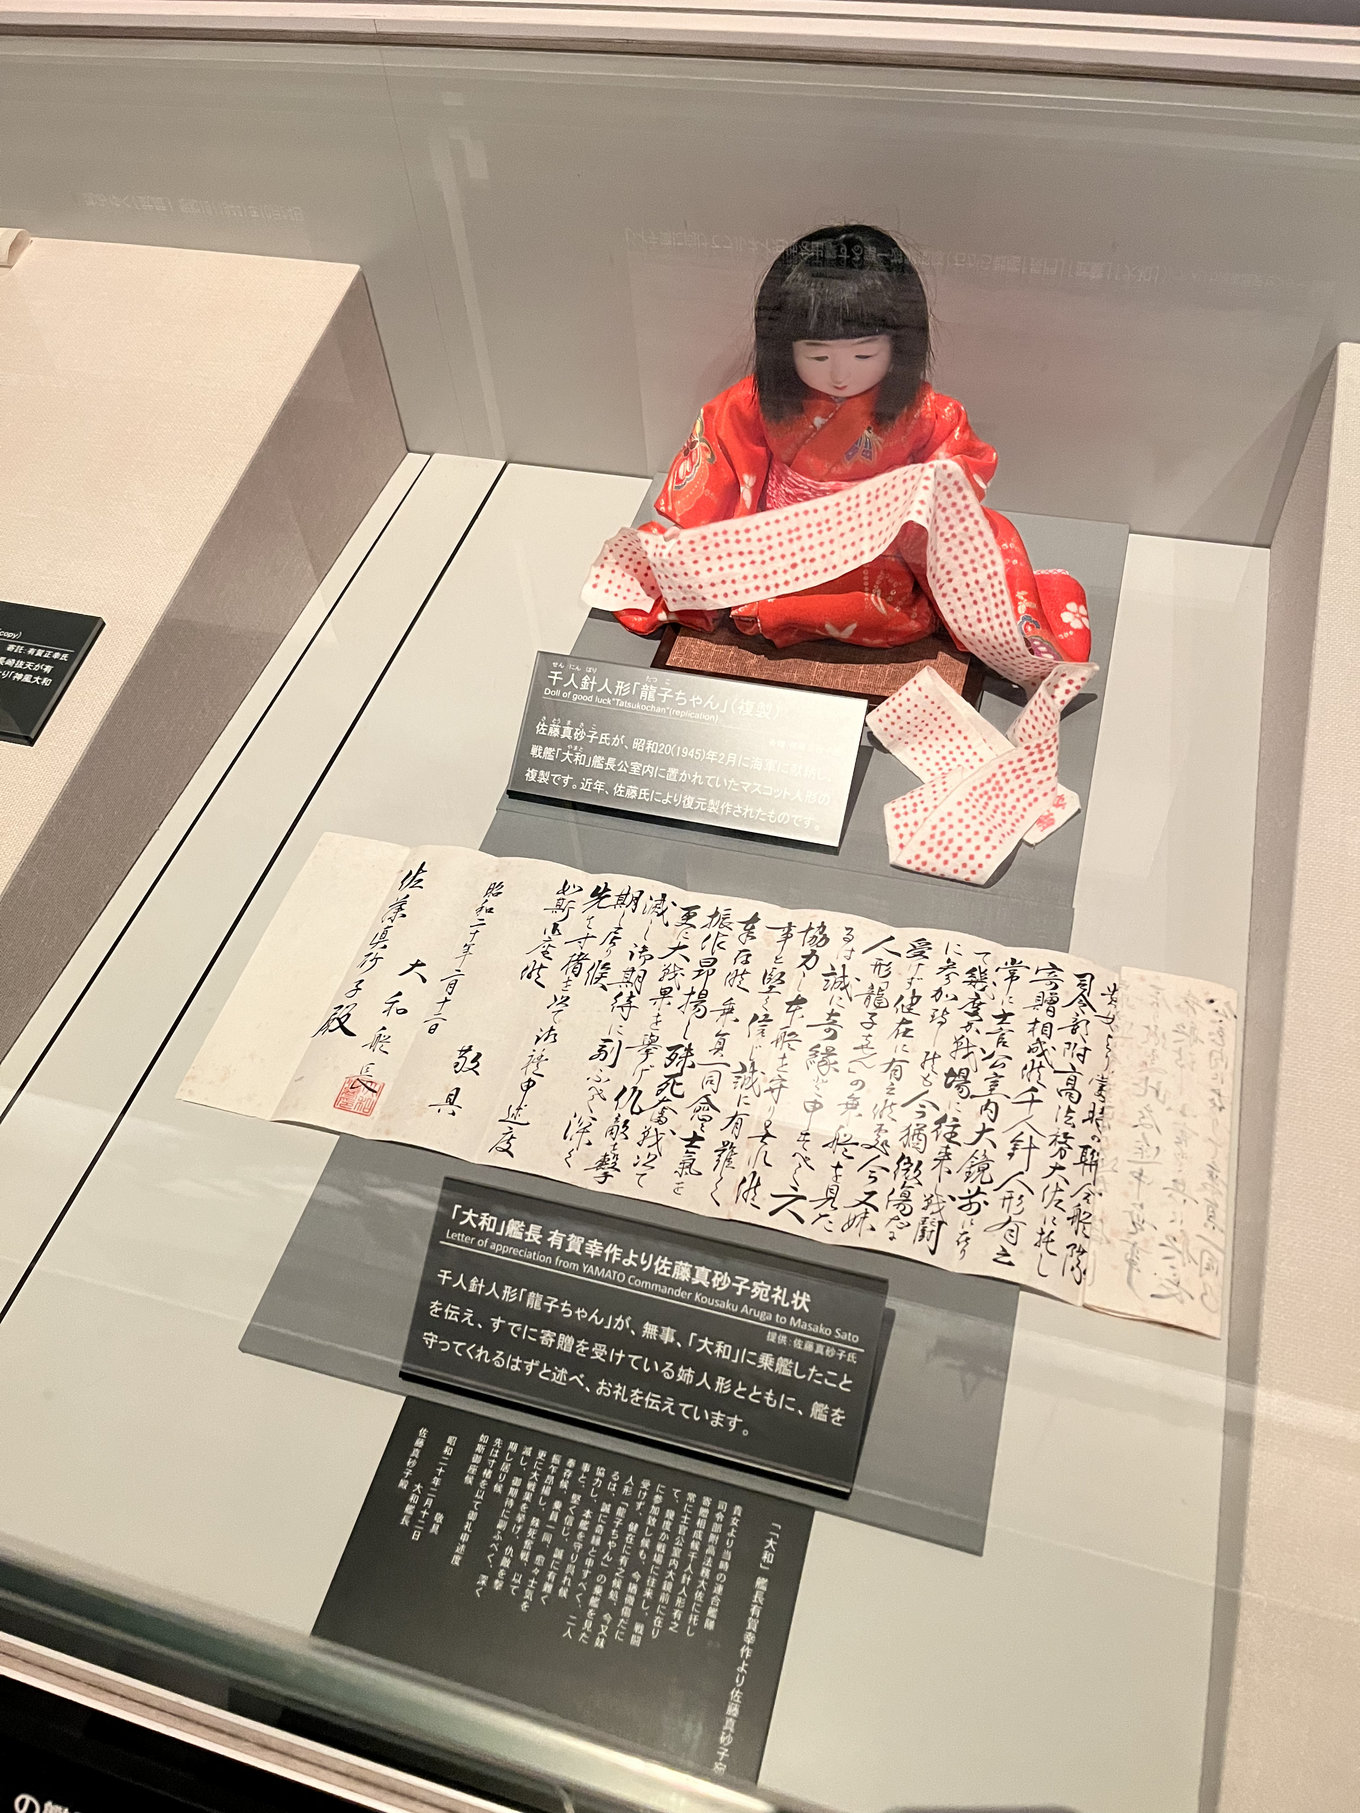 (copy)
寄託:有賀正幸氏
せんにんばり
たつこ
千人針人形「龍子ちゃん」(複製)
Doll of good luck"Tatsukochan"(replication)
さとうまさこ
佐藤真砂子氏が、昭和20(1945)年2月に海軍に献納し、
やまと
戦艦「大和」艦長公室内に置かれていたマスコット人形の
複製です。近年、佐藤氏により復元製作されたものです。
司令部附高法務大佐に托し
寄贈相成候千人針人形有之
常に士官公室内大鏡前に在り
て幾度か戦場に往来し
に参加致し候も今猶微傷だに
受けず健在に有之候処今又妹
人形龍子ちゃんの乗艦を見た
るは誠に奇縁と申すべく二人
協力し本艦を守り呉れ候
事と堅く信じ誠に有難く
奉存候乗員一同愈々士氣を
振作昂揚し殊死奮戦以て
更に大戦果を挙げ仇敵を撃
滅し御期待に副ふべく深く
期し居り候
先は寸楮を以て御礼申述度
如斯御座候
敬具
昭和二十年二月十二日
大和艦長
佐藤真砂子殿
「大和」艦長 有賀幸作より佐藤真砂子宛礼状
Letter of appreciation from YAMATO Commander Kousaku Aruga to Masako Sato
提供:佐藤真砂子氏
千人針人形「龍子ちゃん」が、無事、「大和」に乗艦したこと
を伝え、すでに寄贈を受けている姉人形とともに、艦を
守ってくれるはずと述べ、お礼を伝えています。
「「大和」艦長有賀幸作より佐藤真砂子宛
貴女より当時の連合艦隊
司令部附高法務大佐に托し
寄贈相成候千人針人形有之
常に士官公室内大鏡前に在り
て、幾度か戦場に往来し、戦闘
に参加致し候も、今猶微傷だに
受けず、健在に有之候処、今又妹
人形「龍子ちゃん」の乗艦を見た
るは、誠に奇縁と申すべく、二人
協力し、本艦を守り呉れ候
事と、堅く信じ、誠に有難く
奉存候、乗員一同、愈々士気を
振乍昂揚し、殊死奮戦、以て
更に大戦果を挙げ、仇敵を撃
滅し、御期待に副ふべく、深く
期し居り候
先は寸楮を以て御礼申述度
如斯御座候
敬具
昭和二十年二月十二日
大和艦長
佐藤真砂子殿